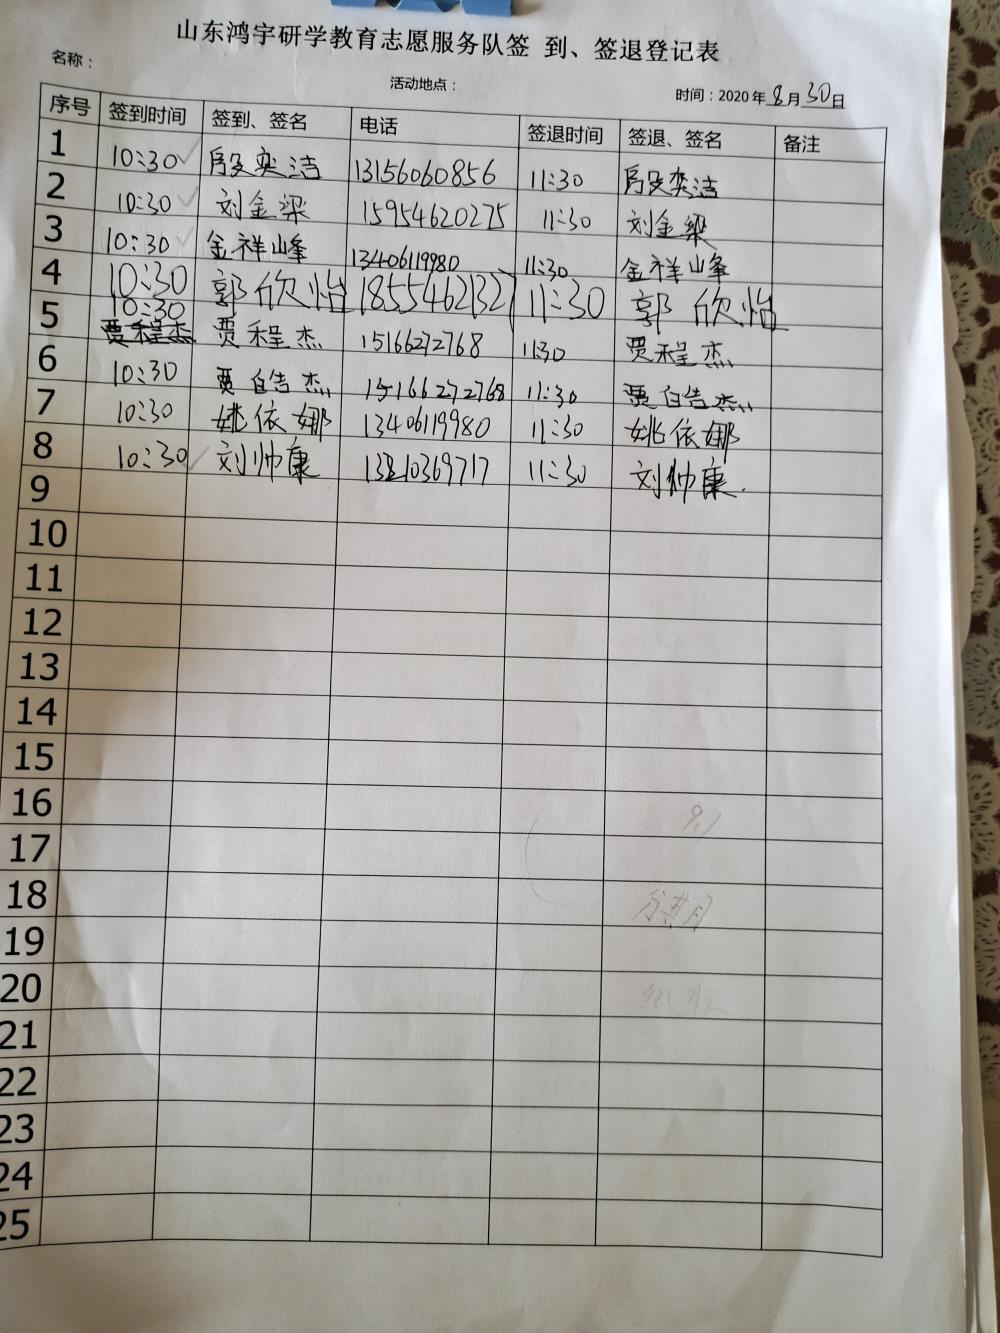 山东鸿宇研学教育志愿服务队签 到、签退登记表
名称：
活动地点：
时间：2020年8月30日
序号 签到时间 签到、签名 电话 签退时间 签退、签名 备注
1 10:30 段奕洁 13156060856 11:30 段奕洁
2 10:30 刘金梁 15954620275 11:30 刘金梁
3 10:30 金祥峰 13406119980 11:30 金祥峰
4 10:30 郭欣怡 18554621327 11:30 郭欣怡
5 10:30 贾程杰 贾程杰 15166272768 11:30 贾程杰
6 10:30 贾皓杰 15166272768 11:30 贾皓杰
7 10:30 姚依娜 13406119980 11:30 姚依娜
8 10:30 刘帅康 11:30 刘帅康
9
10
11
12
13
14
15
16
17
18
19
20
21
22
23
24
25